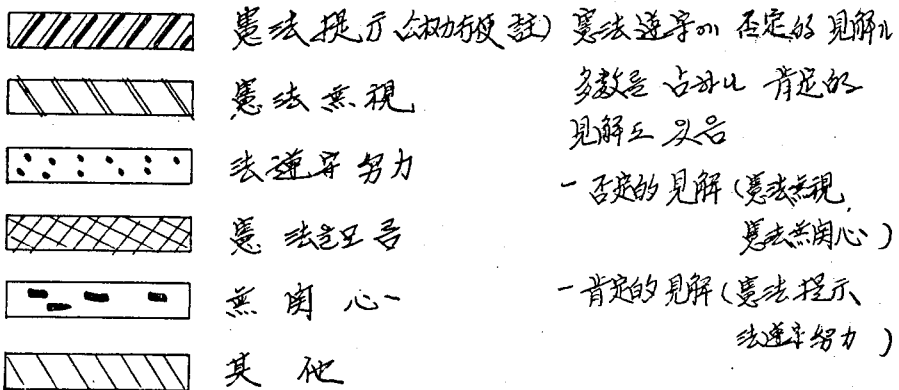 憲法提示 (公权力行使 註)
憲法無視
法遵守 努力
憲法을모름
無関心
其他
憲法遵守에 否定的 見解가
多数를 占하나 肯定的
見解도 있음
- 否定的 見解 (憲法無視,
憲法無関心)
- 肯定的 見解 (憲法提示,
法遵守努力)